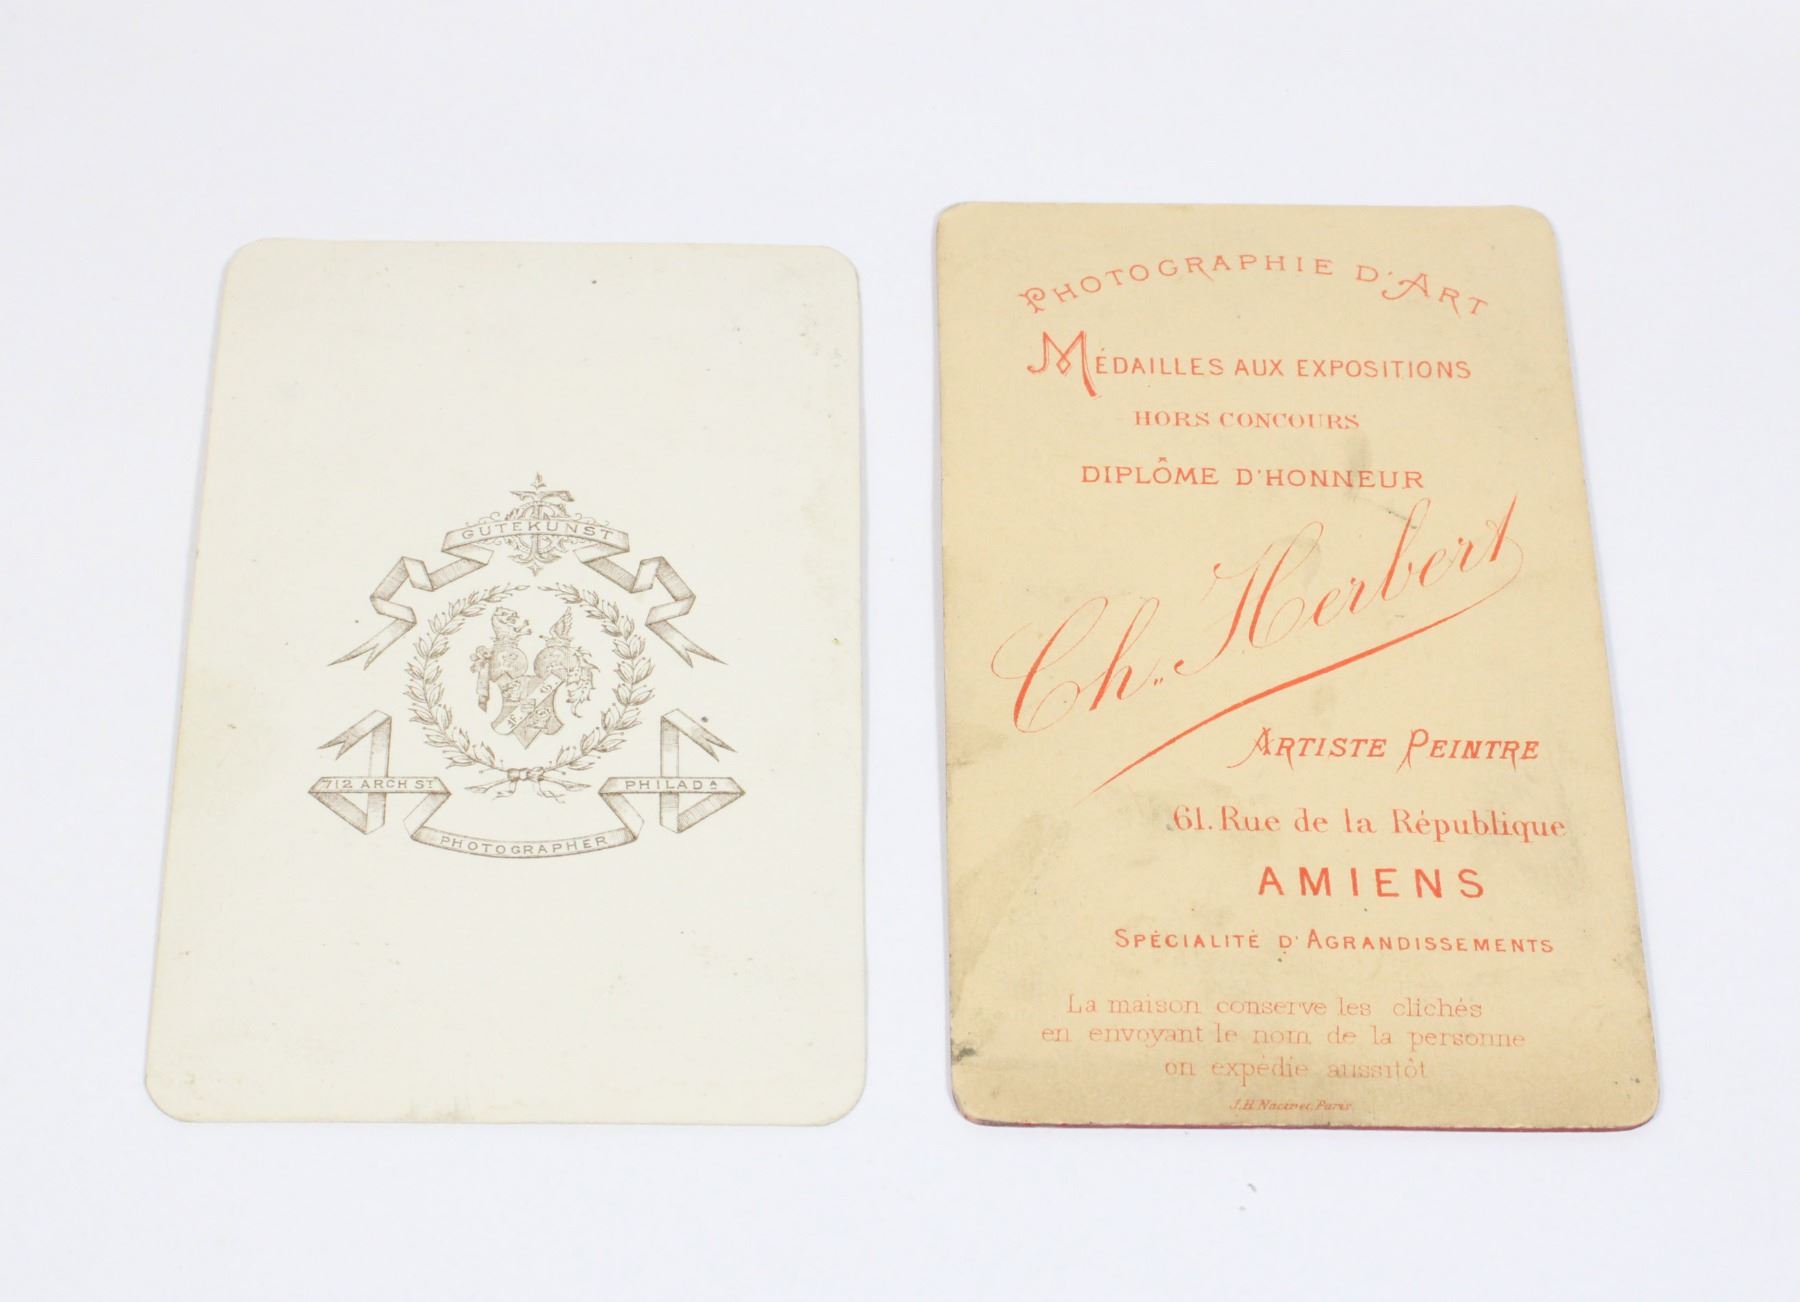 GUTEKUNST
712 ARCH ST
PHILADA
PHOTOGRAPHER
PHOTOGRAPHIE D'ART
MÉDAILLES AUX EXPOSITIONS
HORS CONCOURS
DIPLÔME D'HONNEUR
Ch. Herbert
ARTISTE PEINTRE
61. Rue de la République
AMIENS
SPÉCIALITÉ D'AGRANDISSEMENTS
La maison conserve les clichés
en envoyant le nom de la personne
on expédie aussitôt
J.H. Nacivet, Paris